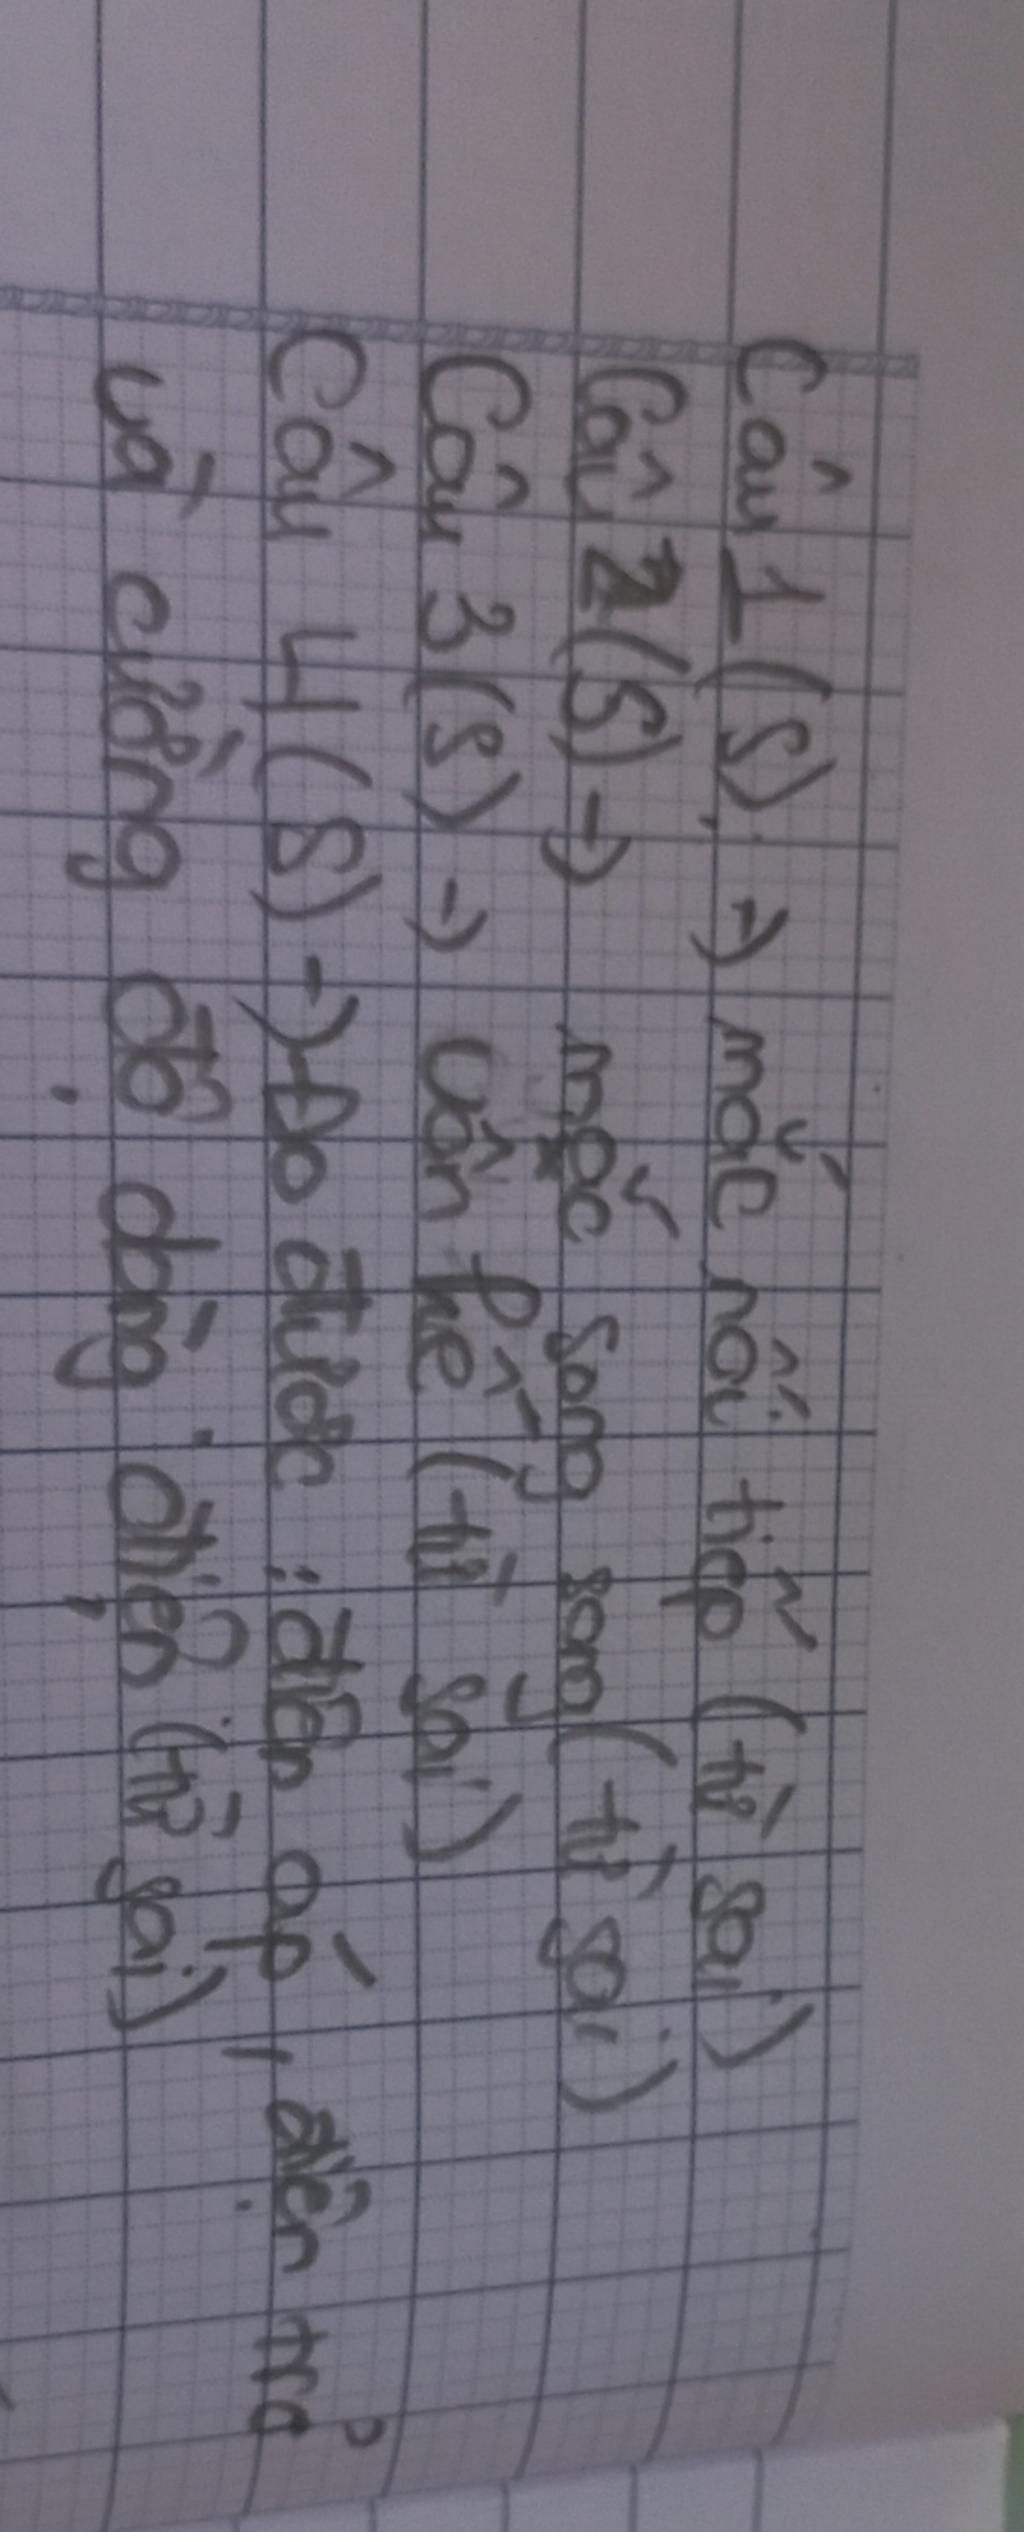 Câu 1 (S) → mắc nối tiếp (từ sai)
Câu 2 (S) → mắc song song (từ sai)
Câu 3 (S) → Vôn kế (từ sai)
Câu 4 (S) → Đo được : điện áp, điện trở
và cường độ dòng điện (từ sai)